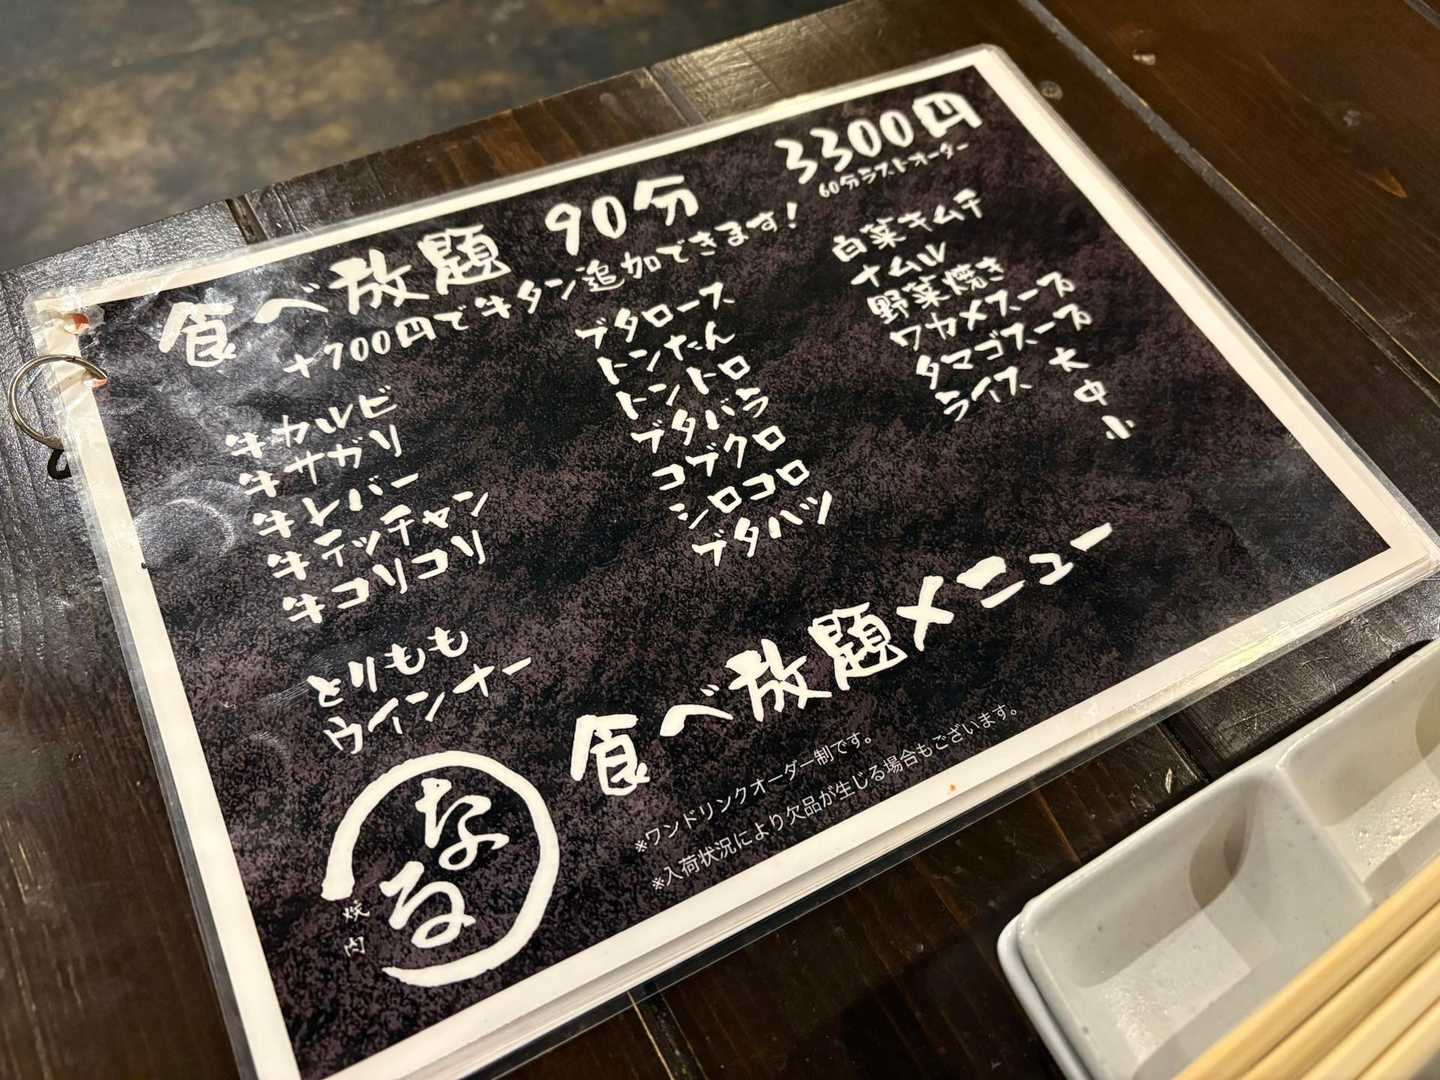 食べ放題 90分 3300円
60分ラストオーダー
+700円で牛タン追加できます!
牛カルビ
牛サガリ
牛レバー
牛テッチャン
牛コリコリ
とりもも
ウインナー
ブタロース
トンたん
トントロ
ブタバラ
コブクロ
シロコロ
ブタハツ
白菜キムチ
ナムル
野菜焼き
ワカメスープ
タマゴスープ
ライス 大
中
小
食べ放題メニュー
※ワンドリンクオーダー制です。
※入荷状況により欠品が生じる場合もございます。
焼肉
なる